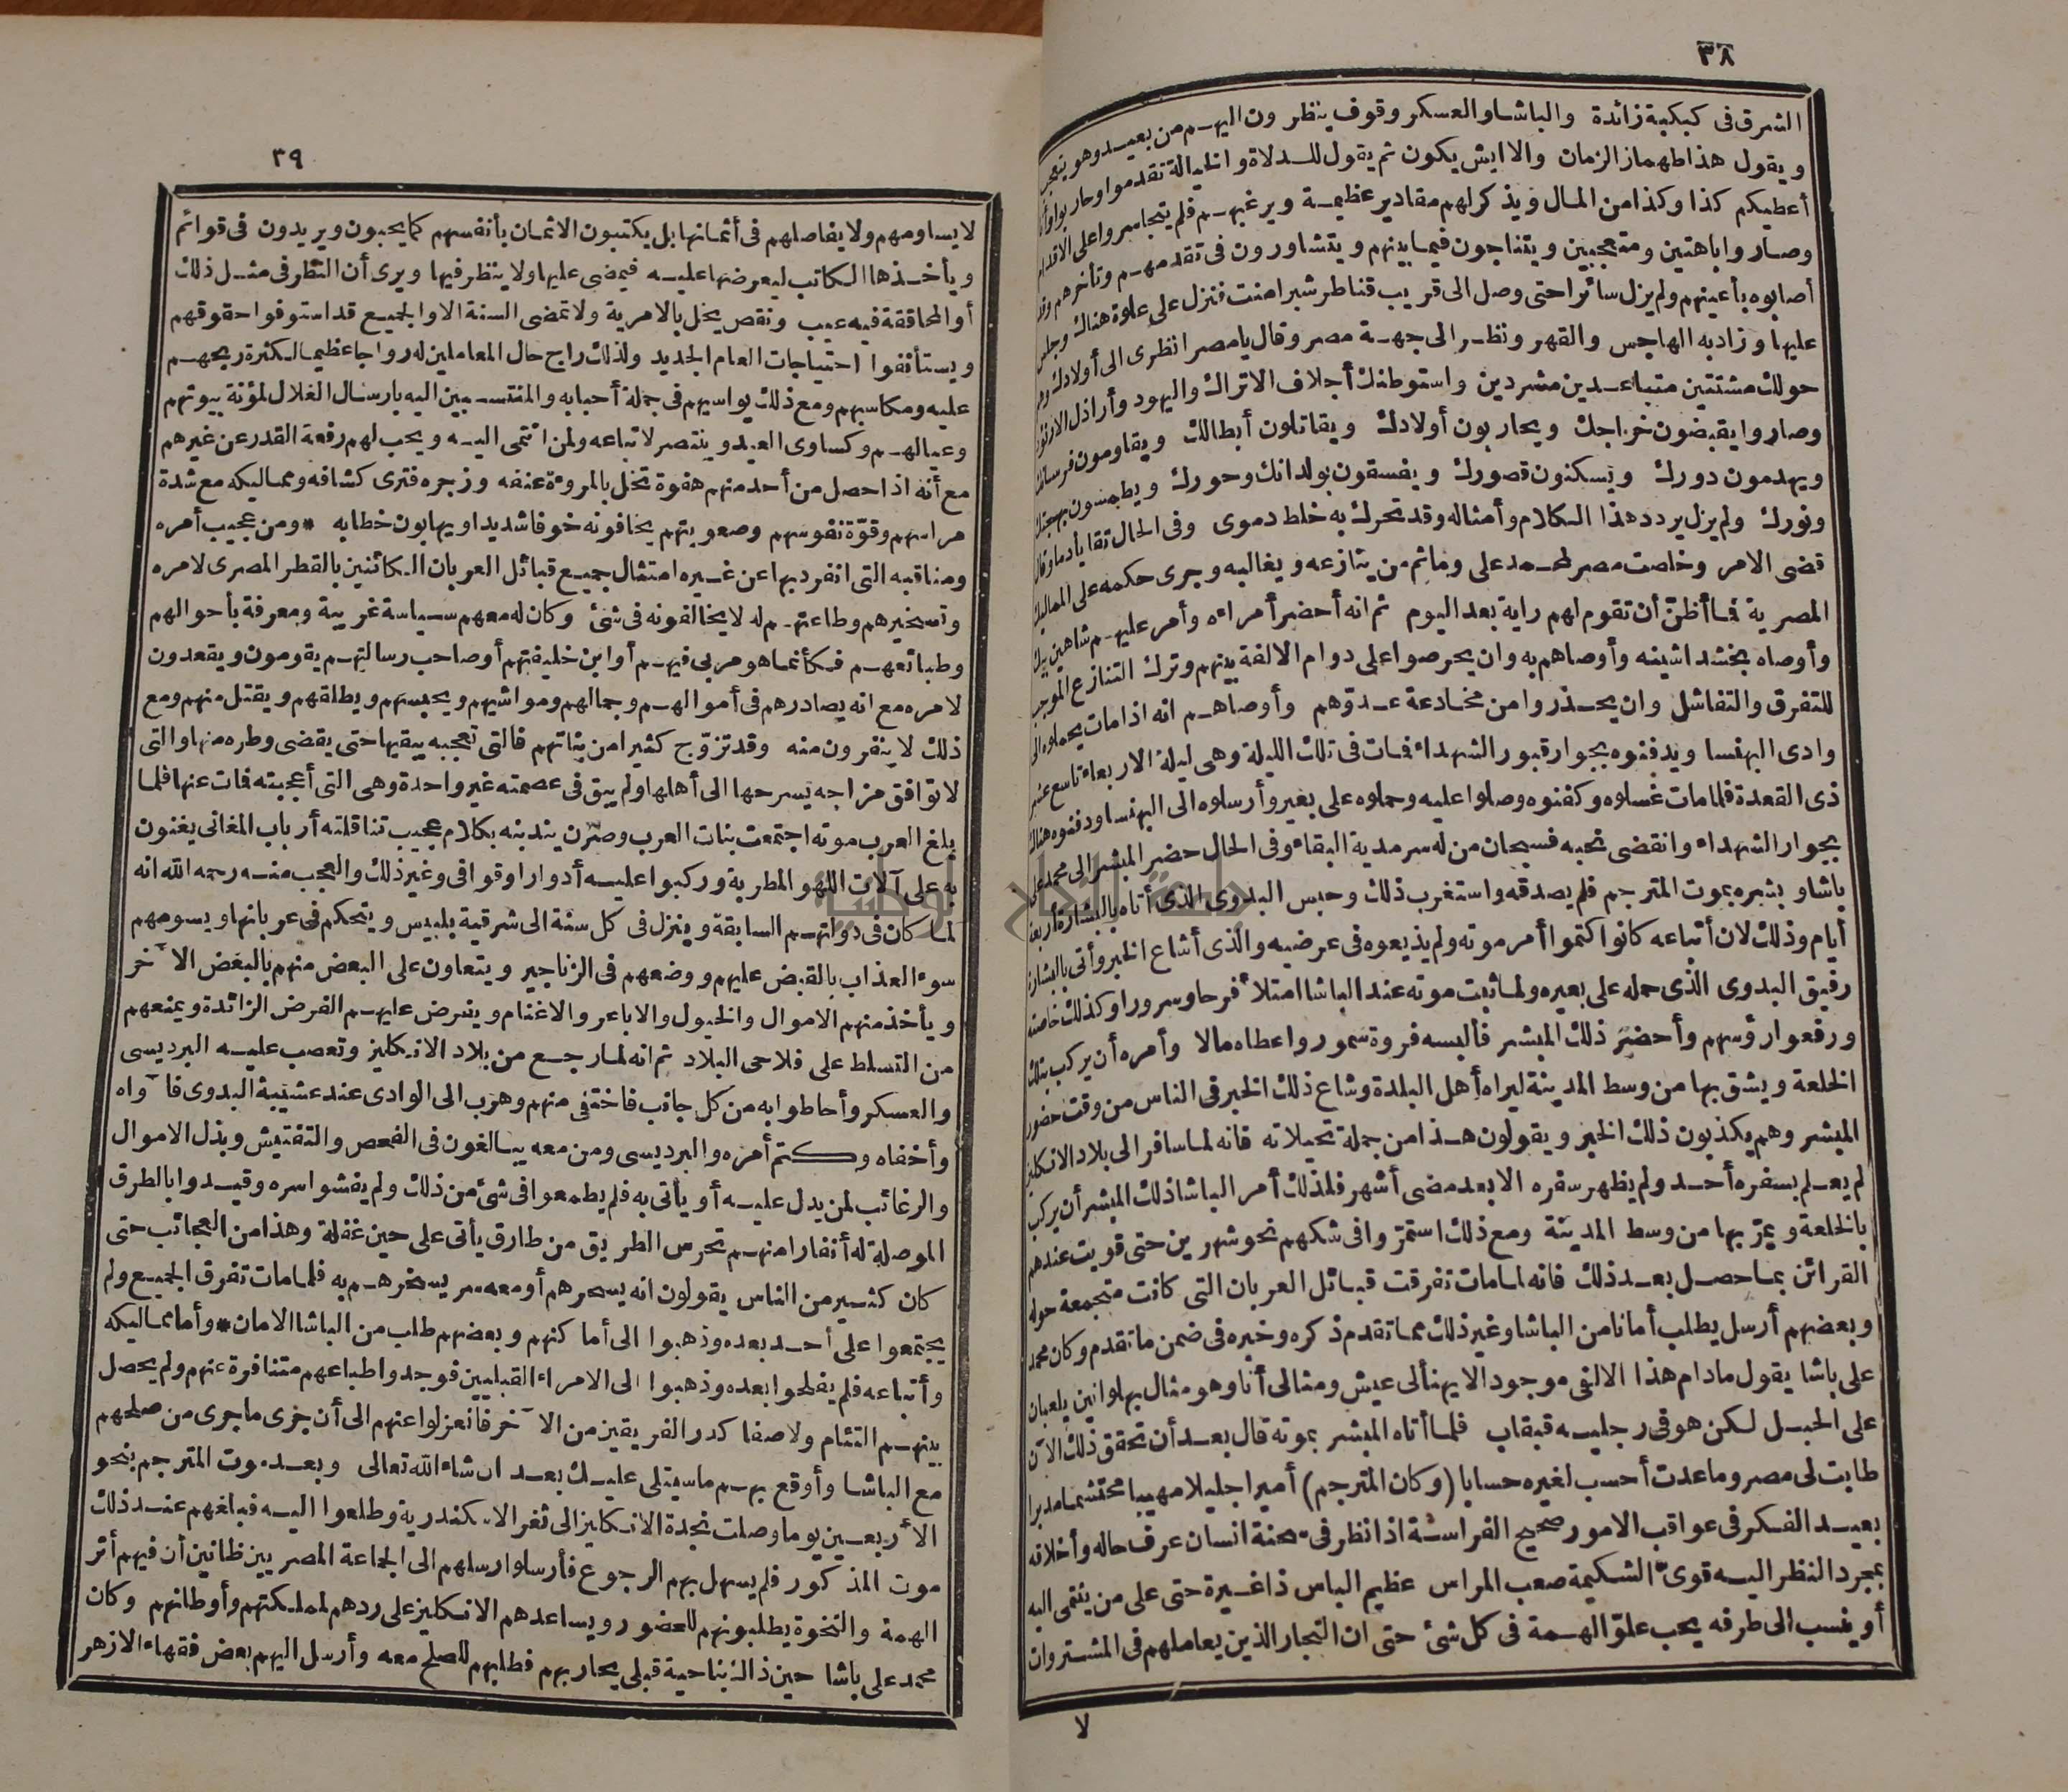 ٣٨
الشرق فى كبكبة زائدة والباشا والعسكر وقوف ينظرون اليهم من بعيد وهو يتعجب
ويقول هذا طهماز الزمان والا ايش يكون ثم يقول للدلاة والخيالة تقدموا وحاربوا وأنا
أعطيكم كذا وكذا من المال ويذكر لهم مقادير عظيمة ويرغبهم فلم يتجاسروا على الاقدام
وصاروا باهتين ومتعجبين ويتناجون فيما بينهم ويتشاورون فى تقدمهم وتأخرهم وقد
أصابوه بأعينهم ولم يزل سائرا حتى وصل الى قريب قناطر شبرامنت فنزل على علوة هناك وجلس
عليها وزاد به الهاجس والقهر ونظر الى جهة مصر وقال يا مصر انظرى الى أولادك وهم
حولك مشتتين متباعدين مشردين واستوطنك أجلاف الاتراك واليهود وأراذل الارنؤد
وصاروا يقبضون خراجك ويحاربون أولادك ويقاتلون أبطالك ويقاومون فرسانك
ويهدمون دورك ويسكنون قصورك ويفسقون بولدانك وحورك ويطمسون بهجتك
ونورك ولم يزل يردد هذا الكلام وأمثاله وقد تحرك به خلط دموى وفى الحال تقايأ دما وقال
قضى الامر وخلصت مصر لمحمد على وما ثم من ينازعه ويغالبه وجرى حكمه على المماليك
المصرية فما أظن أن تقوم لهم راية بعد اليوم ثم انه أحضر أمراءه وأمر عليهم شاهين بيك
وأوصاه بخشداشينه وأوصاهم به وان يحرصوا على دوام الالفة بينهم وترك التنازع الموجب
للتفرق والتفاشل وان يحذروا من مخادعة عدوّهم وأوصاهم انه اذا مات يحملوه الى
وادى البهنسا ويدفنوه بجوار قبور الشهداء فمات فى تلك الليلة وهى ليلة الاربعاء تاسع عشر
ذى القعدة فلما مات غسلوه وكفنوه وصلوا عليه وحملوه على بعير وأرسلوه الى البهنسا ودفنوه هناك
بجوار الشهداء وانقضى نحبه فسبحان من له سرمدية البقاء وفى الحال حضر المبشر الى محمد على
باشا وبشره بموت المترجم فلم يصدقه واستغرب ذلك وحبس البدوى الذى أتاه بالبشارة أربعة
أيام وذلك لان أتباعه كانوا كتموا أمر موته ولم يذيعوه فى عرضيه والذى أشاع الخبر وأتى بالبشارة
رفيق البدوى الذى حمله على بعيره ولما ثبت موته عند الباشا امتلأ فرحا وسرورا وكذلك خاصته
ورفعوا رؤسهم وأحضر ذلك المبشر فألبسه فروة سمور وأعطاه مالا وأمره أن يركب بتلك
الخلعة ويشق بها من وسط المدينة ليراه أهل البلدة وشاع ذلك الخبر فى الناس من وقت حضور
المبشر وهم يكذبون ذلك الخبر ويقولون هذا من جملة تحيلاته فانه لما سافر الى بلاد الانكليز
لم يعلم بسفره أحد ولم يظهر سفره الا بعد مضى أشهر فلذلك أمر الباشا ذلك المبشر أن يركب
بالخلعة ويمرّ بها من وسط المدينة ومع ذلك استمرّوا فى شكهم نحو شهرين حتى قويت عندهم
القرائن بما حصل بعد ذلك فانه لما مات تفرقت قبائل العربان التى كانت متجمعة حوله
وبعضهم أرسل يطلب أمانا من الباشا وغير ذلك مما تقدم ذكره وخبره فى ضمن ما تقدم وكان محمد
على باشا يقول ما دام هذا الالفى موجودا لا يهنأ لى عيش ومثالى أنا وهو مثال بهلوانين يلعبان
على الحبل لكن هو فى رجليه قبقاب فلما أتاه المبشر بموته قال بعد أن تحقق ذلك الآن
طابت لى مصر وما عدت أحسب لغيره حسابا (وكان المترجم) أميرا جليلا مهيبا محتشما مدبرا
بعيد الفكر فى عواقب الامور صحيح الفراسة اذا نظر فى سحنة انسان عرف حاله وأخلاقه
بمجرد النظر اليه قوىّ الشكيمة صعب المراس عظيم الباس ذا غيرة حتى على من ينتمى اليه
أو ينسب الى طرفه يحب علوّ الهمة فى كل شئ حتى ان التجار الذين يعاملهم فى المشتروات
لا
٣٩
لا يساومهم ولا يفاصلهم فى أثمانها بل يكتبون الاثمان بأنفسهم كما يحبون ويريدون فى قوائم
ويأخذها الكاتب ليعرضها عليه فيمضى عليها ولا ينظر فيها ويرى أن النظر فى مثل ذلك
أو المحاققة فيه عيب ونقص يخل بالامرية ولا تمضى السنة الا والجميع قد استوفوا حقوقهم
ويستأنفوا احتياجات العام الجديد ولذلك راج حال المعاملين له رواجا عظيما لكثرة ربحهم
عليه ومكاسبهم ومع ذلك يواسيهم فى جملة أحبابه والمنتسبين اليه بارسال الغلال لمؤنة بيوتهم
وعيالهم وكساوى العيد وينتصر لاتباعه ولمن انتمى اليه ويحب لهم رفعة القدر عن غيرهم
مع أنه اذا حصل من أحد منهم هفوة تخل بالمروءة عنفه وزجره فترى كشافه ومماليكه مع شدة
مراسهم وقوّة نفوسهم وصعوبتهم يخافونه خوفا شديدا ويهابون خطابه * ومن عجيب أمره
ومناقبه التى انفرد بها عن غيره امتثال جميع قبائل العربان الكائنين بالقطر المصرى لامره
وتسخيرهم وطاعتهم له لا يخالفونه فى شئ وكان له معهم سياسة غريبة ومعرفة بأحوالهم
وطبائعهم فكأنما هو مربى فيهم أو ابن خليفتهم أو صاحب رسالتهم يقومون ويقعدون
لامره مع انه يصادرهم فى أموالهم وجمالهم ومواشيهم ويحبسهم ويطلقهم ويقتل منهم ومع
ذلك لا ينفرون منه وقد تزوّج كثيرا من بناتهم فالتى تعجبه يبقيها حتى يقضى وطره منها والتى
لا توافق مزاجه يسرحها الى أهلها ولم يبق فى عصمته غير واحدة وهى التى أعجبته فمات عنها فلما
بلغ العرب موته اجتمعت بنات العرب وصرن يندبنه بكلام عجيب تناقلته أرباب المغانى يغنون
به على آلات اللهو المطربة وركبوا عليه أدوارا وقوافى وغير ذلك والعجب منه رحمه الله انه
لما كان فى دولتهم السابقة وينزل فى كل سنة الى شرقية بلبيس ويتحكم فى عربانها ويسومهم
سوء العذاب بالقبض عليهم ووضعهم فى الزناجير ويتعاون على البعض منهم بالبعض الآخر
ويأخذ منهم الاموال والخيول والاباعر والاغنام ويفرض عليهم الفرض الزائدة ويمنعهم
من التسلط على فلاحى البلاد ثم انه لما رجع من بلاد الانكليز وتعصب عليه البرديسى
والعسكر وأحاطوا به من كل جانب فاختفى منهم وهرب الى الوادى عند عشيبة البدوى فآواه
وأخفاه وكتم أمره والبرديسى ومن معه يبالغون فى الفحص والتفتيش وبذل الاموال
والرغائب لمن يدل عليه أو يأتى به فلم يطمعوا فى شئ من ذلك ولم يفشوا سره وقيدوا بالطرق
الموصلة له أنفارا منهم تحرس الطريق من طارق يأتى على حين غفلة وهذا من العجائب حتى
كان كثير من الناس يقولون انه يسحرهم أو معه سر يسخرهم به فلما مات تفرق الجميع ولم
يجتمعوا على أحد بعده وذهبوا الى أماكنهم وبعضهم طلب من الباشا الامان * وأما مماليكه
وأتباعه فلم يفلحوا بعده وذهبوا الى الامراء القبليين فوجدوا طباعهم متنافرة عنهم ولم يحصل
بينهم التئام ولا صفا كدر الفريقين من الآخر فانعزلوا عنهم الى أن جرى ما جرى من صلحهم
مع الباشا وأوقع بهم ما سيتلى عليك بعد ان شاء الله تعالى وبعد موت المترجم بنحو
الأربعين يوما وصلت نجدة الانكليز الى ثغر الاسكندرية وطلعوا اليه فبلغهم عند ذلك
موت المذكور فلم يسهل بهم الرجوع فأرسلوا رسلهم الى الجماعة المصريين ظانين أن فيهم أثر
الهمة والنخوة يطلبونهم للحضور ويساعدهم الانكليز على ردهم لمملكتهم وأوطانهم وكان
محمد على باشا حين ذاك بناحية قبلى يحاربهم فطلبهم للصلح معه وأرسل اليهم بعض فقهاء الازهر